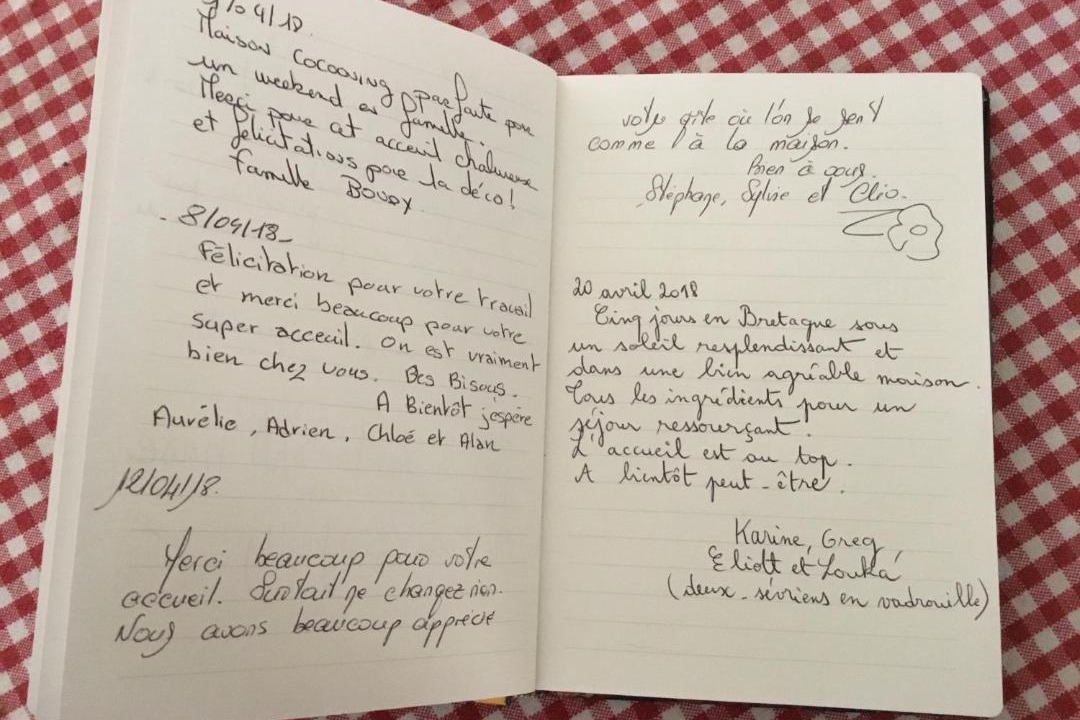 /04/18.
Maison Cocooning parfaite pour
un weekend en famille.
Merci pour cet acceuil chaleureux
et félicitations pour la déco!
famille BOUDY.
8/04/18_
Félicitation pour votre travail
et merci beaucoup pour votre
super acceuil. On est vraiment
bien chez vous. Des Bisous.
A Bientôt j'espère
Aurélie, Adrien, Chloé et Alan
12/04/18.
Merci beaucoup pour votre
accueil. Surtout ne changez rien.
Nous avons beaucoup apprécié
votre gîte où l'on se sent
comme à la maison.
Bien à vous.
Stéphane, Sylvie et Clio.
20 avril 2018
Cinq jours en Bretagne sous
un soleil resplendissant et
dans une bien agréable maison.
Tous les ingrédients pour un
séjour ressourçant.
L'accueil est au top.
A bientôt peut-être.
Karine, Greg,
Eliott et Louka
(deux-sévriens en vadrouille)